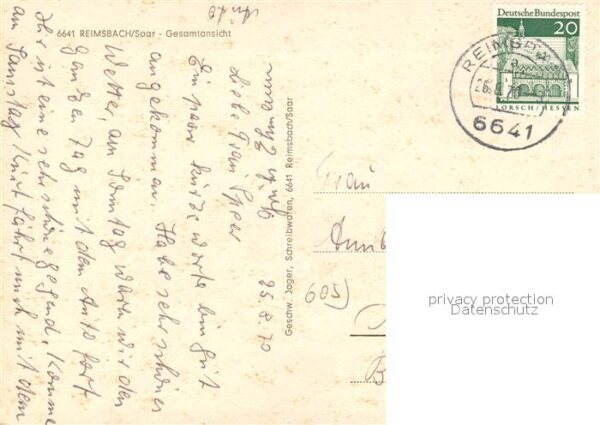 6641 REIMSBACH/Saar - Gesamtansicht
Deutsche Bundespost
20
LORSCH / HESSEN
REIMSBACH
6641
Geschw. Jager, Schreibwaren, 6641 Reimsbach/Saar
25.8.70
Liebe Frau
Ein paar kurze Worte bin gut
angekommen. Habe sehr schönes
Wetter, am Sonntag waren wir den
ganzen Tag mit dem Auto fort
Hir ist eine sehr schöne gegend. Komme
am Samstag Kurt fährt mich mit dem
Frau
privacy protection
Datenschutz